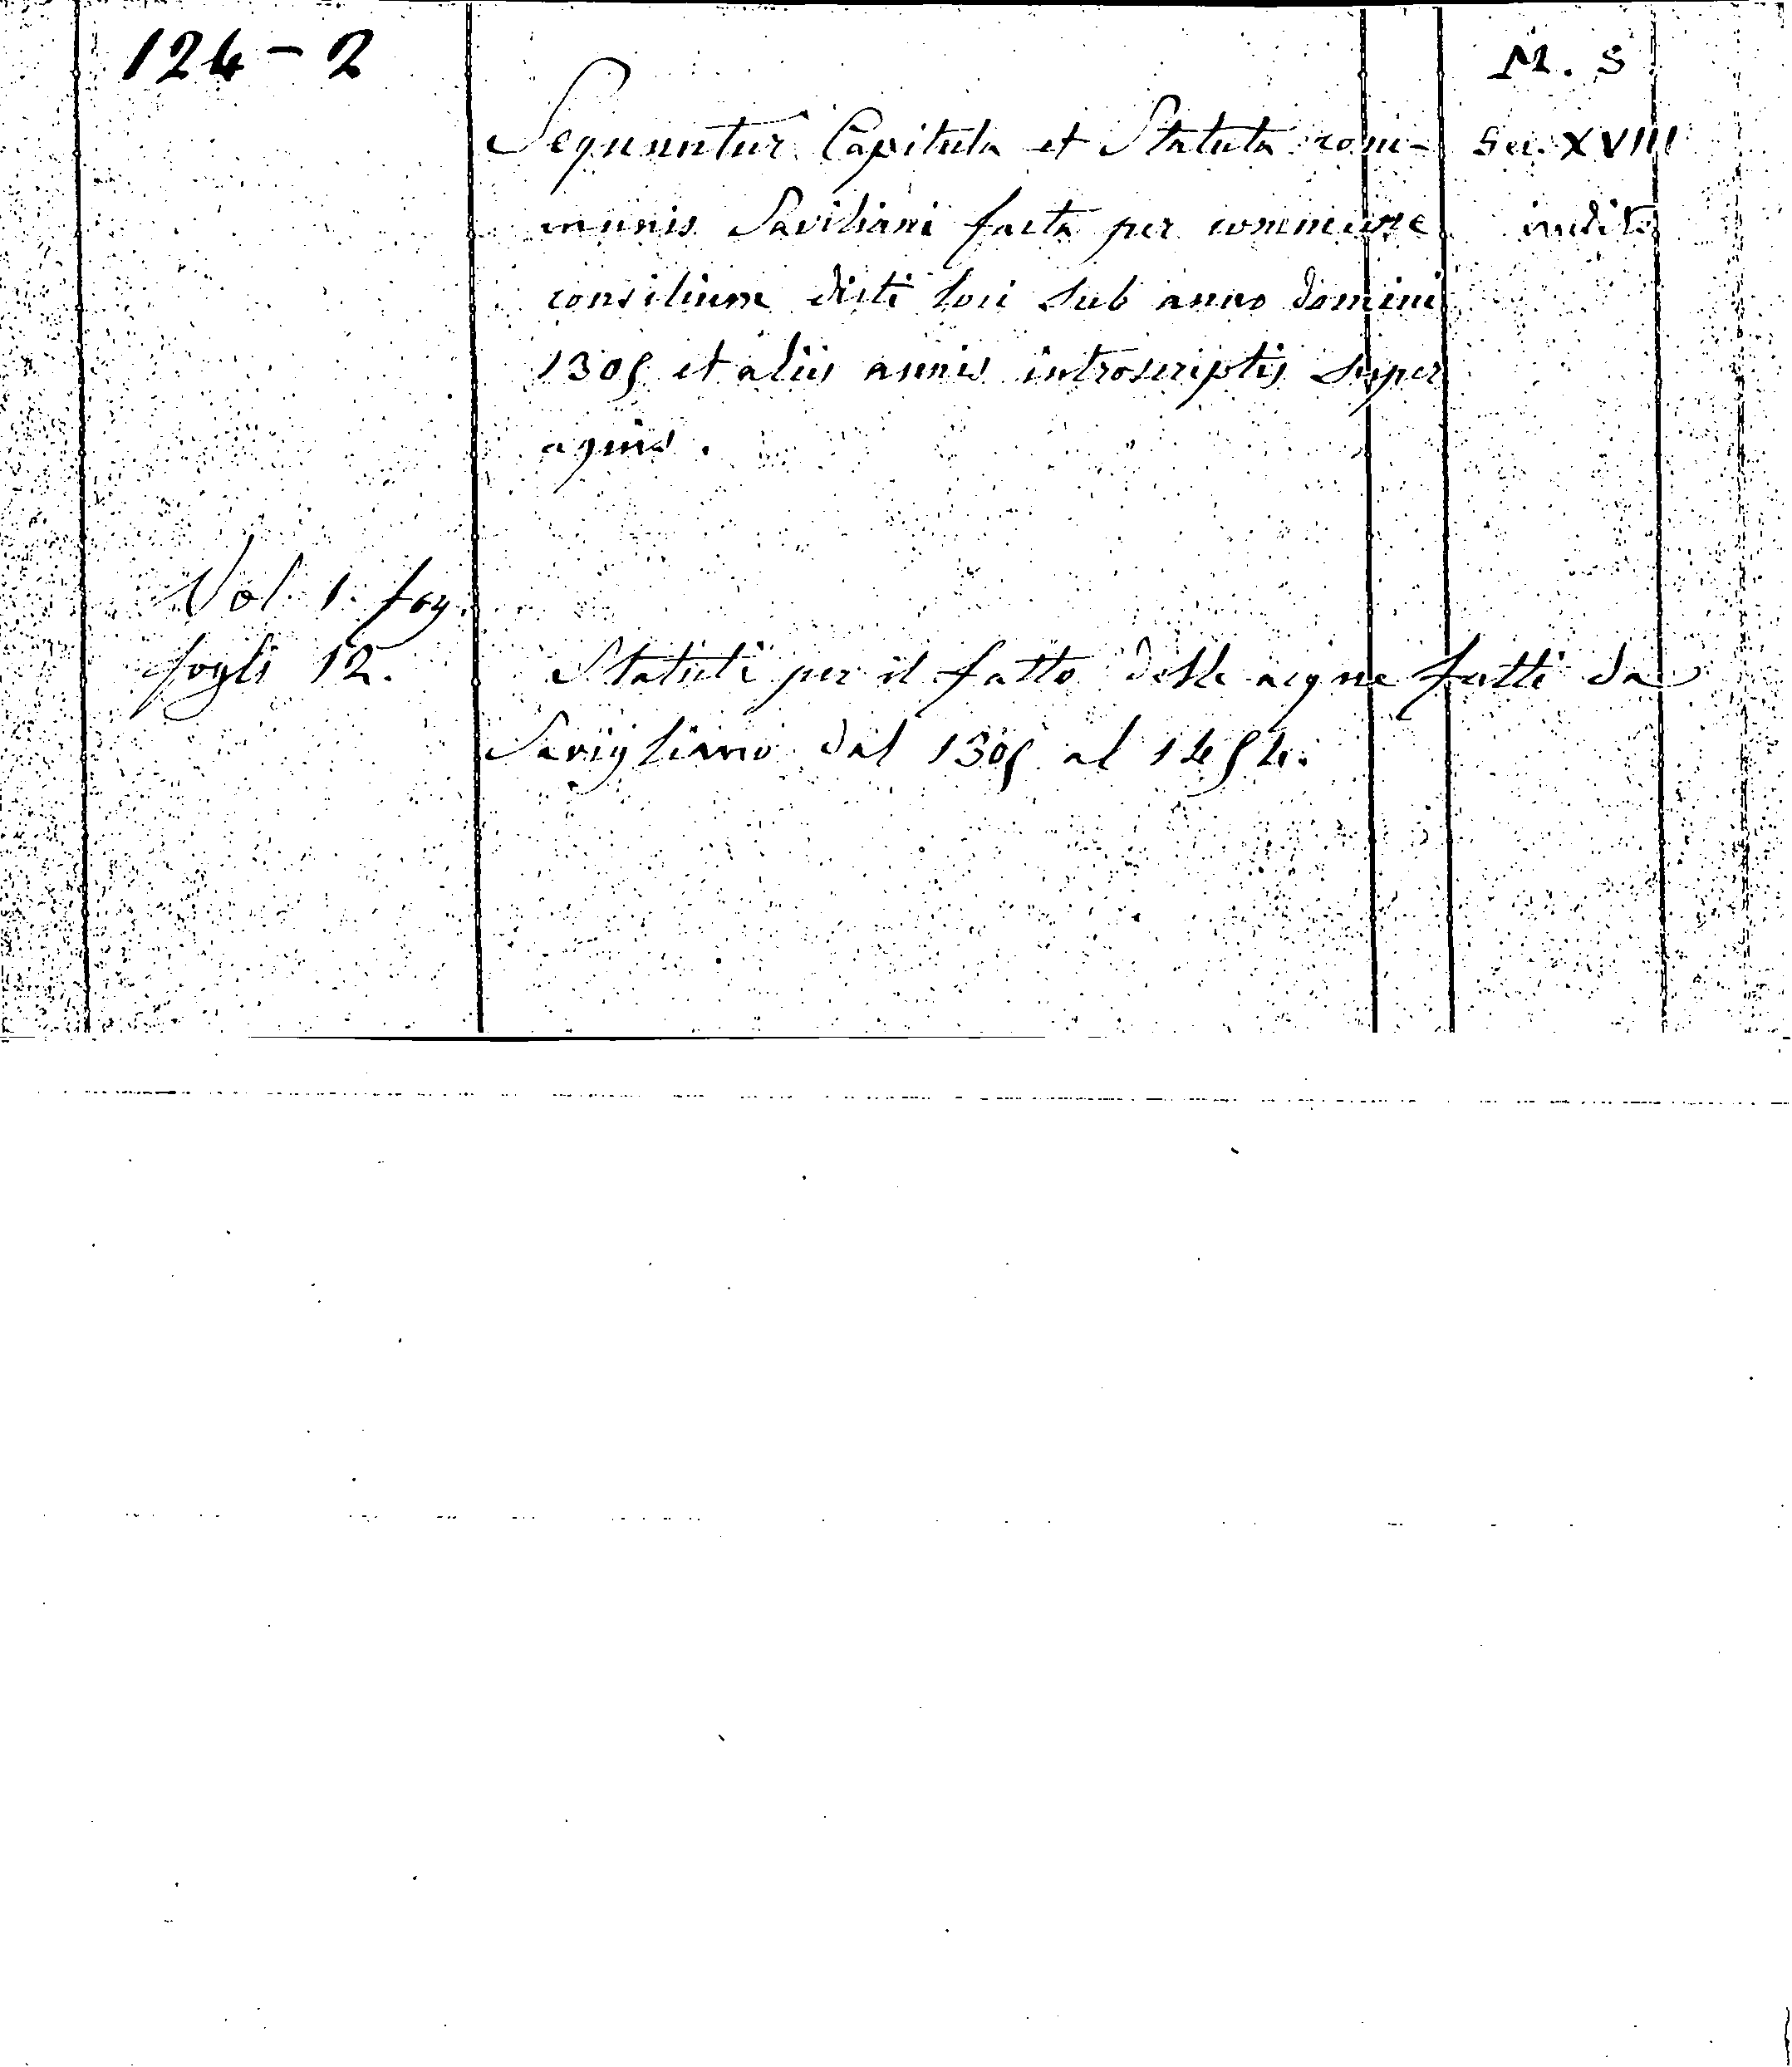 124 - 2
M. S.
Sequuntur Capitula et Statuta com-
Sec. XVIII
munis Saviliani facta per commune
inedito
consilium dicti loci sub anno domini
1305 et aliis annis introscriptis super
aquis.
Vol. 1. fog.
fogli 12.
Statuti per il fatto delle acque fatti da
Savigliano dal 1305 al 1454.